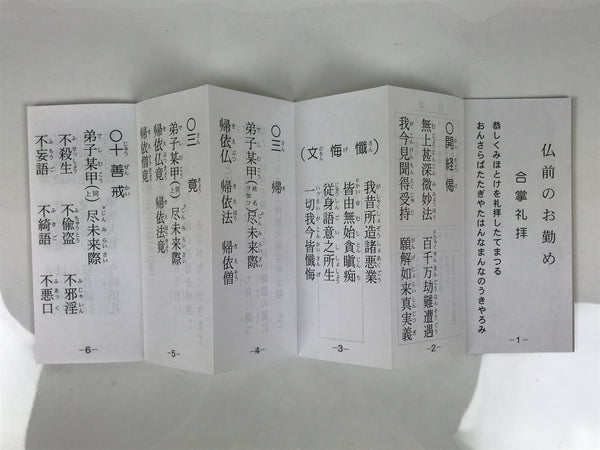 仏前のお勤め
合掌礼拝
恭しくみほとけを礼拝したてまつる
おんさらばたたぎゃたはんなまんなのうきゃろみ
-1-
〇開経偈
無上甚深微妙法 百千万劫難遭遇
我今見聞得受持 願解如来真実義
-2-
(懺悔文)
我昔所造諸悪業
皆由無始貪瞋痴
従身語意之所生
一切我今皆懺悔
-3-
〇三帰
弟子某甲(姓名ヲ加フ)尽未来際
帰依仏 帰依法 帰依僧
-4-
〇三竟
弟子某甲(上同)尽未来際
帰依仏竟 帰依法竟
帰依僧竟
-5-
〇十善戒
弟子某甲(上同)尽未来際
不殺生 不偸盗 不邪淫
不妄語 不綺語 不悪口
-6-